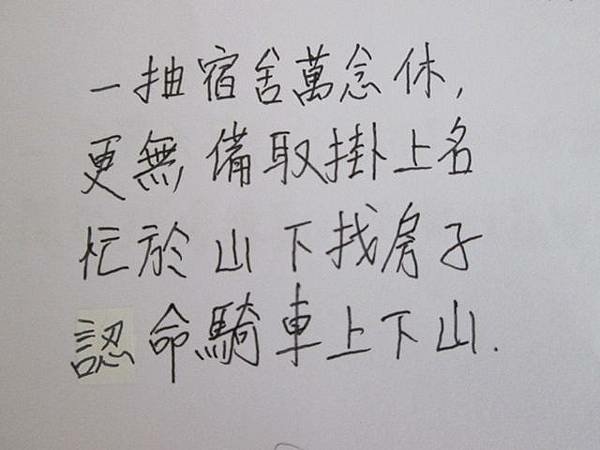 一抽宿舍萬念休,
更無備取掛上名
忙於山下找房子
認命騎車上下山.